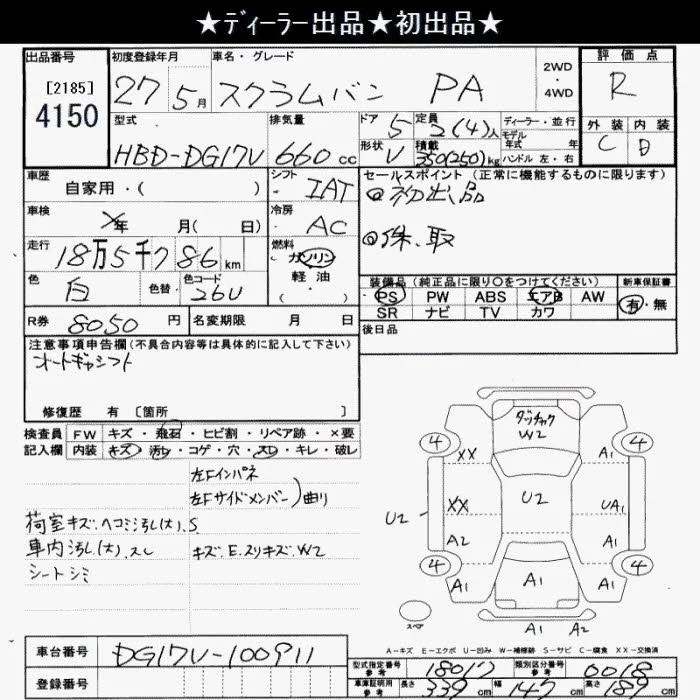 ★ディーラー出品★初出品★
出品番号
[2185]
4150
初度登録年月
27 5月
車名・グレード
スクラムバン PA
2WD
・
4WD
評価点
R
型式
HBD-DG17V
排気量
660cc
ドア 5
形状 V
定員 2(4)人
積載 350(250)kg
ディーラー・並行
モデル年式 年
ハンドル 左・右
外装 内装
C D
車歴
自家用・( )
シフト
IAT
車検
年 月( 日)
冷房
AC
走行
18万5千786km
燃料
ガソリン
軽油
( )
色
白
色替・
色コード
26U
R券 8050円
名変期限 月 日
セールスポイント(正常に機能するものに限ります)
◎初出品
◎保、取
装備品(純正品に限り○をつけてください)
PS PW ABS エアB AW
SR ナビ TV カワ
新車保証書
有・無
後日品
注意事項申告欄(不具合内容等は具体的に記入して下さい)
オートギヤシフト
修復歴 有 [箇所 ]
検査員記入欄
FW キズ・飛石・ヒビ割・リペア跡・×要
内装 キズ・汚レ・コゲ・穴・スレ・キレ・破レ
左Fインパネ
左Fサイドメンバー)曲り
荷室キズ、ヘコミ汚レ(大)、S
車内汚レ(大)、スレ
キズ、E、スリキズ、W2
シートシミ
ダッチャク
W2
4 4
XX A1
U2 XX U2 UA1
A2
4 4
A1 A1 A1
スペア
A1 A2
A-キズ E-エクボ U-凹み W-補修跡 S-サビ C-腐食 XX-交換済
車台番号
DG17V-100911
登録番号
型式指定番号
参考
18017
類別区分番号
参考
0018
車庫証明用
参考
長さ 339cm
幅 147cm
高さ 189cm